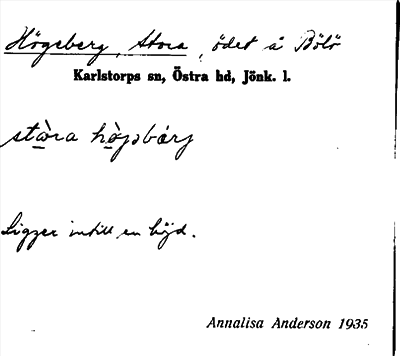 Högsberg, Stora, ödet å Bölö
Karlstorps sn, Östra hd, Jönk. l.
stò̱ra hò̱jsbárj
Ligger intill en höjd.
Annalisa Anderson 1935